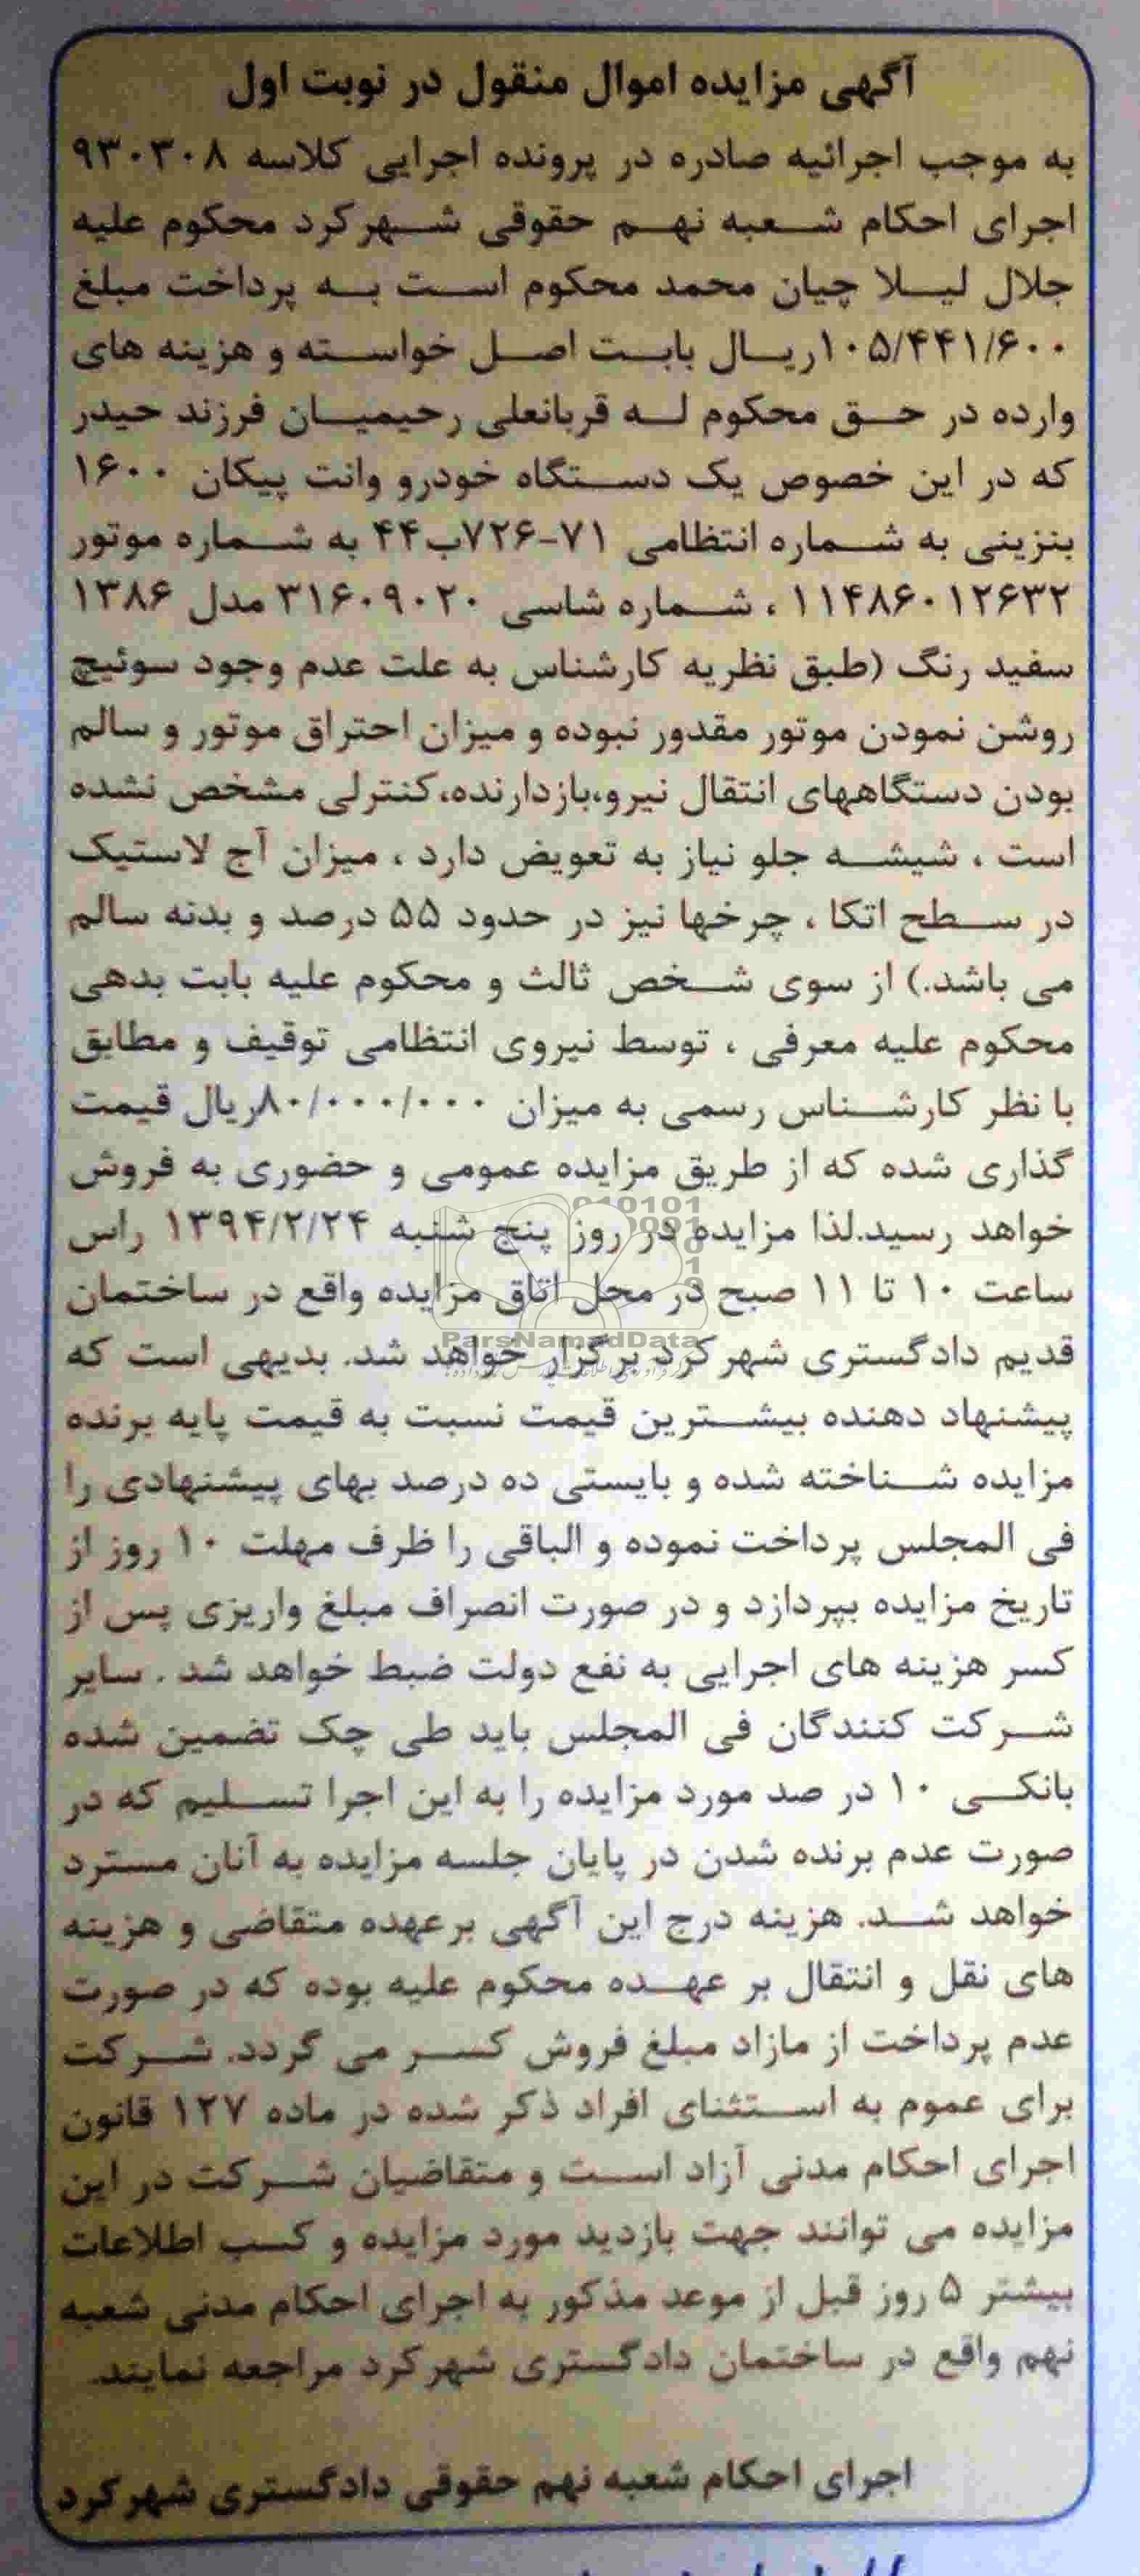 آگهی مزایده اموال منقول در نوبت اول
به موجب اجرائیه صادره در پرونده اجرایی کلاسه ۹۳۰۳۰۸
اجرای احکام شعبه نهم حقوقی شهرکرد محکوم علیه
جلال لیلا چیان محمد محکوم است به پرداخت مبلغ
۱۰۵/۴۴۱/۶۰۰ریال بابت اصل خواسته و هزینه های
وارده در حق محکوم له قربانعلی رحیمیان فرزند حیدر
که در این خصوص یک دستگاه خودرو وانت پیکان ۱۶۰۰
بنزینی به شماره انتظامی ۷۱-۷۲۶ب۴۴ به شماره موتور
۱۱۴۸۶۰۱۲۶۳۲ ، شماره شاسی ۳۱۶۰۹۰۲۰ مدل ۱۳۸۶
سفید رنگ (طبق نظریه کارشناس به علت عدم وجود سوئیچ
روشن نمودن موتور مقدور نبوده و میزان احتراق موتور و سالم
بودن دستگاههای انتقال نیرو،بازدارنده،کنترلی مشخص نشده
است ، شیشه جلو نیاز به تعویض دارد ، میزان آج لاستیک
در سطح اتکا ، چرخها نیز در حدود ۵۵ درصد و بدنه سالم
می باشد.) از سوی شخص ثالث و محکوم علیه بابت بدهی
محکوم علیه معرفی ، توسط نیروی انتظامی توقیف و مطابق
با نظر کارشناس رسمی به میزان ۸۰/۰۰۰/۰۰۰ریال قیمت
گذاری شده که از طریق مزایده عمومی و حضوری به فروش
خواهد رسید.لذا مزایده در روز پنج شنبه ۱۳۹۴/۲/۲۴ راس
ساعت ۱۰ تا ۱۱ صبح در محل اتاق مزایده واقع در ساختمان
ParsNamadData
قدیم دادگستری شهرکرد برگزار خواهد شد. بدیهی است که
پیشنهاد دهنده بیشترین قیمت نسبت به قیمت پایه برنده
مزایده شناخته شده و بایستی ده درصد بهای پیشنهادی را
فی المجلس پرداخت نموده و الباقی را ظرف مهلت ۱۰ روز از
تاریخ مزایده بپردازد و در صورت انصراف مبلغ واریزی پس از
کسر هزینه های اجرایی به نفع دولت ضبط خواهد شد . سایر
شرکت کنندگان فی المجلس باید طی چک تضمین شده
بانکی ۱۰ در صد مورد مزایده را به این اجرا تسلیم که در
صورت عدم برنده شدن در پایان جلسه مزایده به آنان مسترد
خواهد شد. هزینه درج این آگهی برعهده متقاضی و هزینه
های نقل و انتقال بر عهده محکوم علیه بوده که در صورت
عدم پرداخت از مازاد مبلغ فروش کسر می گردد. شرکت
برای عموم به استثنای افراد ذکر شده در ماده ۱۲۷ قانون
اجرای احکام مدنی آزاد است و متقاضیان شرکت در این
مزایده می توانند جهت بازدید مورد مزایده و کسب اطلاعات
بیشتر ۵ روز قبل از موعد مذکور به اجرای احکام مدنی شعبه
نهم واقع در ساختمان دادگستری شهرکرد مراجعه نمایند.
اجرای احکام شعبه نهم حقوقی دادگستری شهرکرد